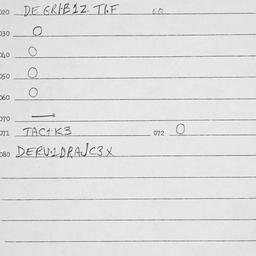 020 DE GRIB1Z T1.F
030 O
040 O
050 O
060 O
070 —
071 TAC+K3 072 O
080 DERV.1DRAJC3X